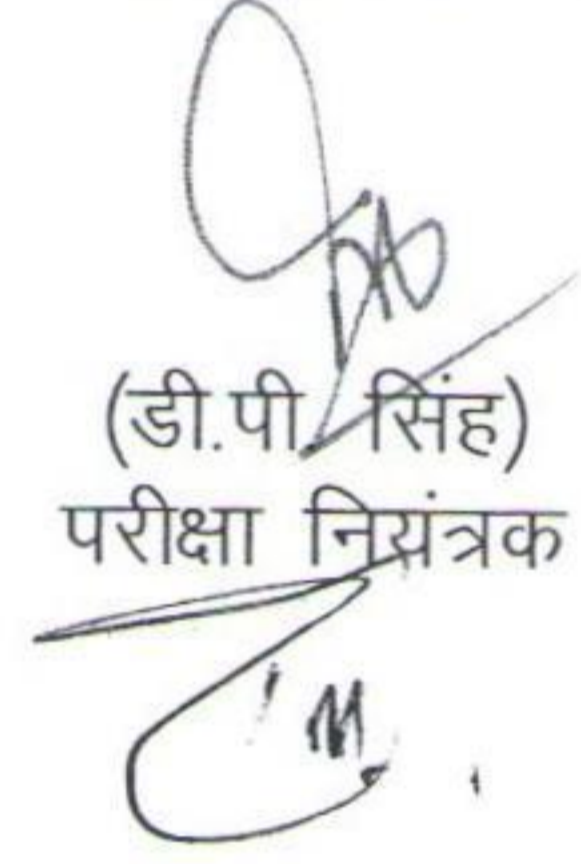 (डी.पी. सिंह)
परीक्षा नियंत्रक